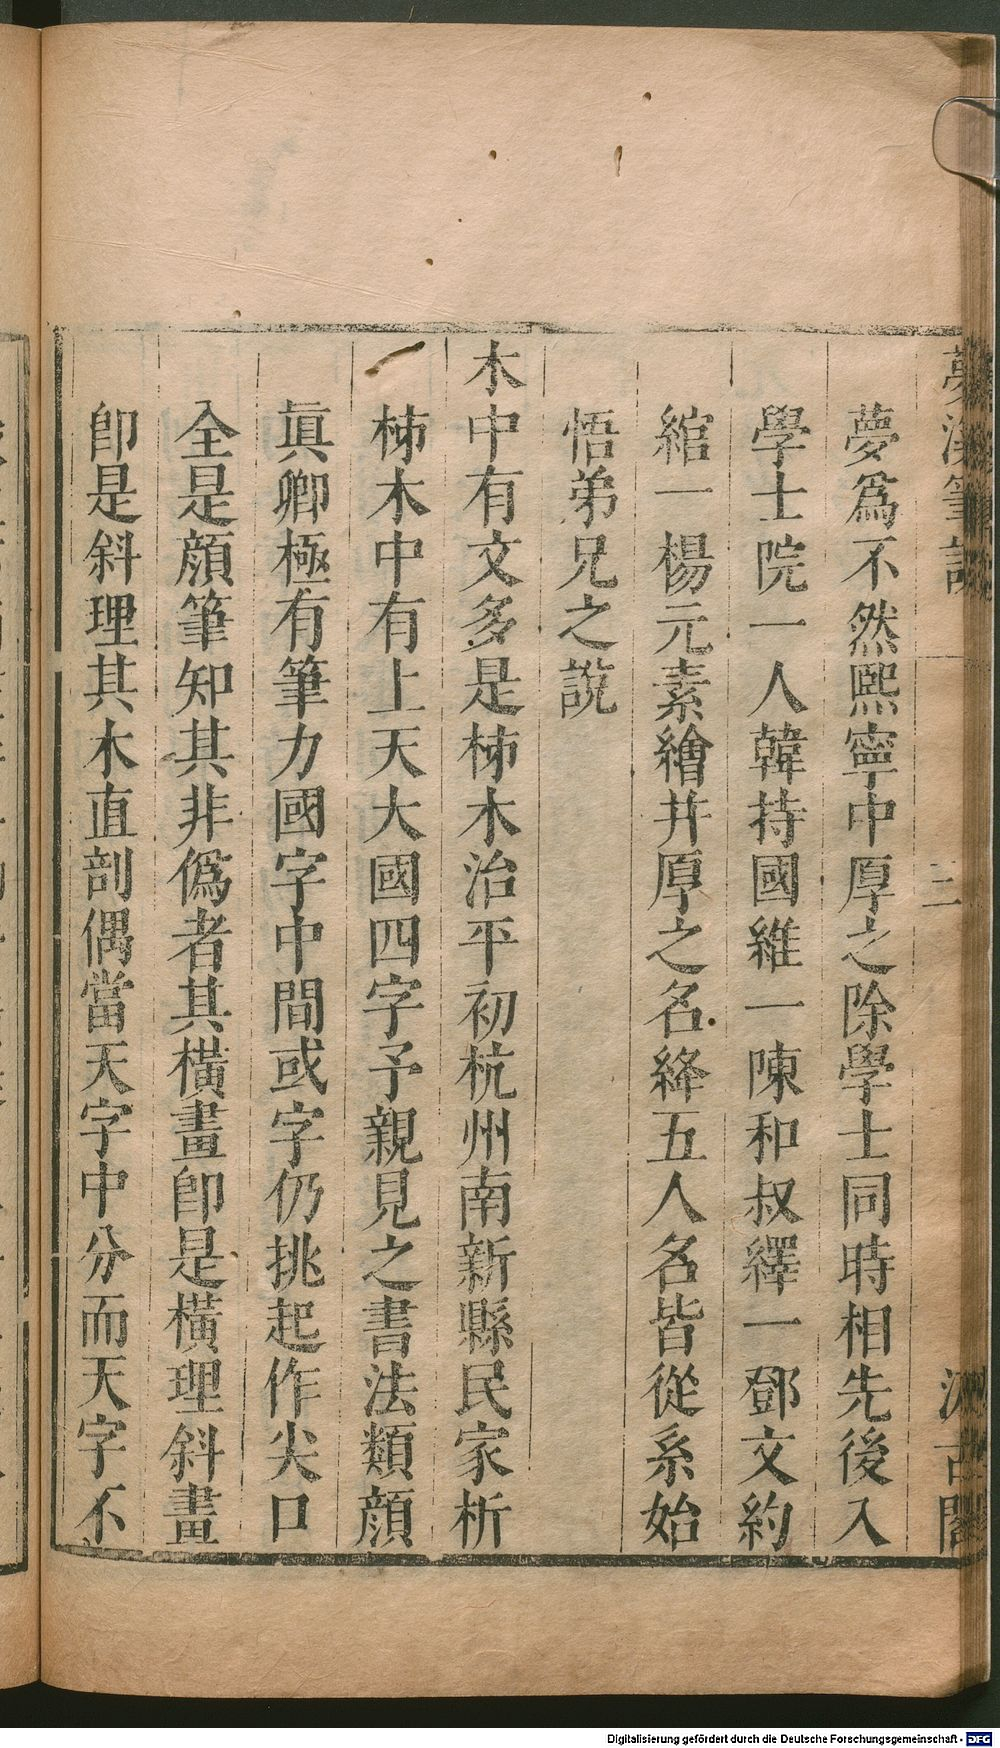 夢爲不然熙寧中厚之除學士同時相先後入
學士院一人韓持國維一陳和叔繹一鄧文約
綰一楊元素繪幷厚之名絳五人名皆從系始
悟弟兄之說
木中有文多是柿木治平初杭州南新縣民家析
柿木中有上天大國四字予親見之書法類顔
眞卿極有筆力國字中間或字仍挑起作尖口
全是顔筆知其非僞者其橫畫卽是橫理斜畫
卽是斜理其木直剖偶當天字中分而天字不
二
Digitalisierung gefördert durch die Deutsche Forschungsgemeinschaft - DFG